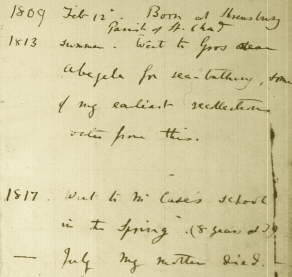 1809 Feb 12th Born at Shrewsbury
Parish of St. Chad
1813 summer. Went to Gros near
Abegela for sea-bathing, some
of my earliest recollections
date from this.
1817. Went to Mr Case's school
in the Spring. (8 years old)
— July my mother died.